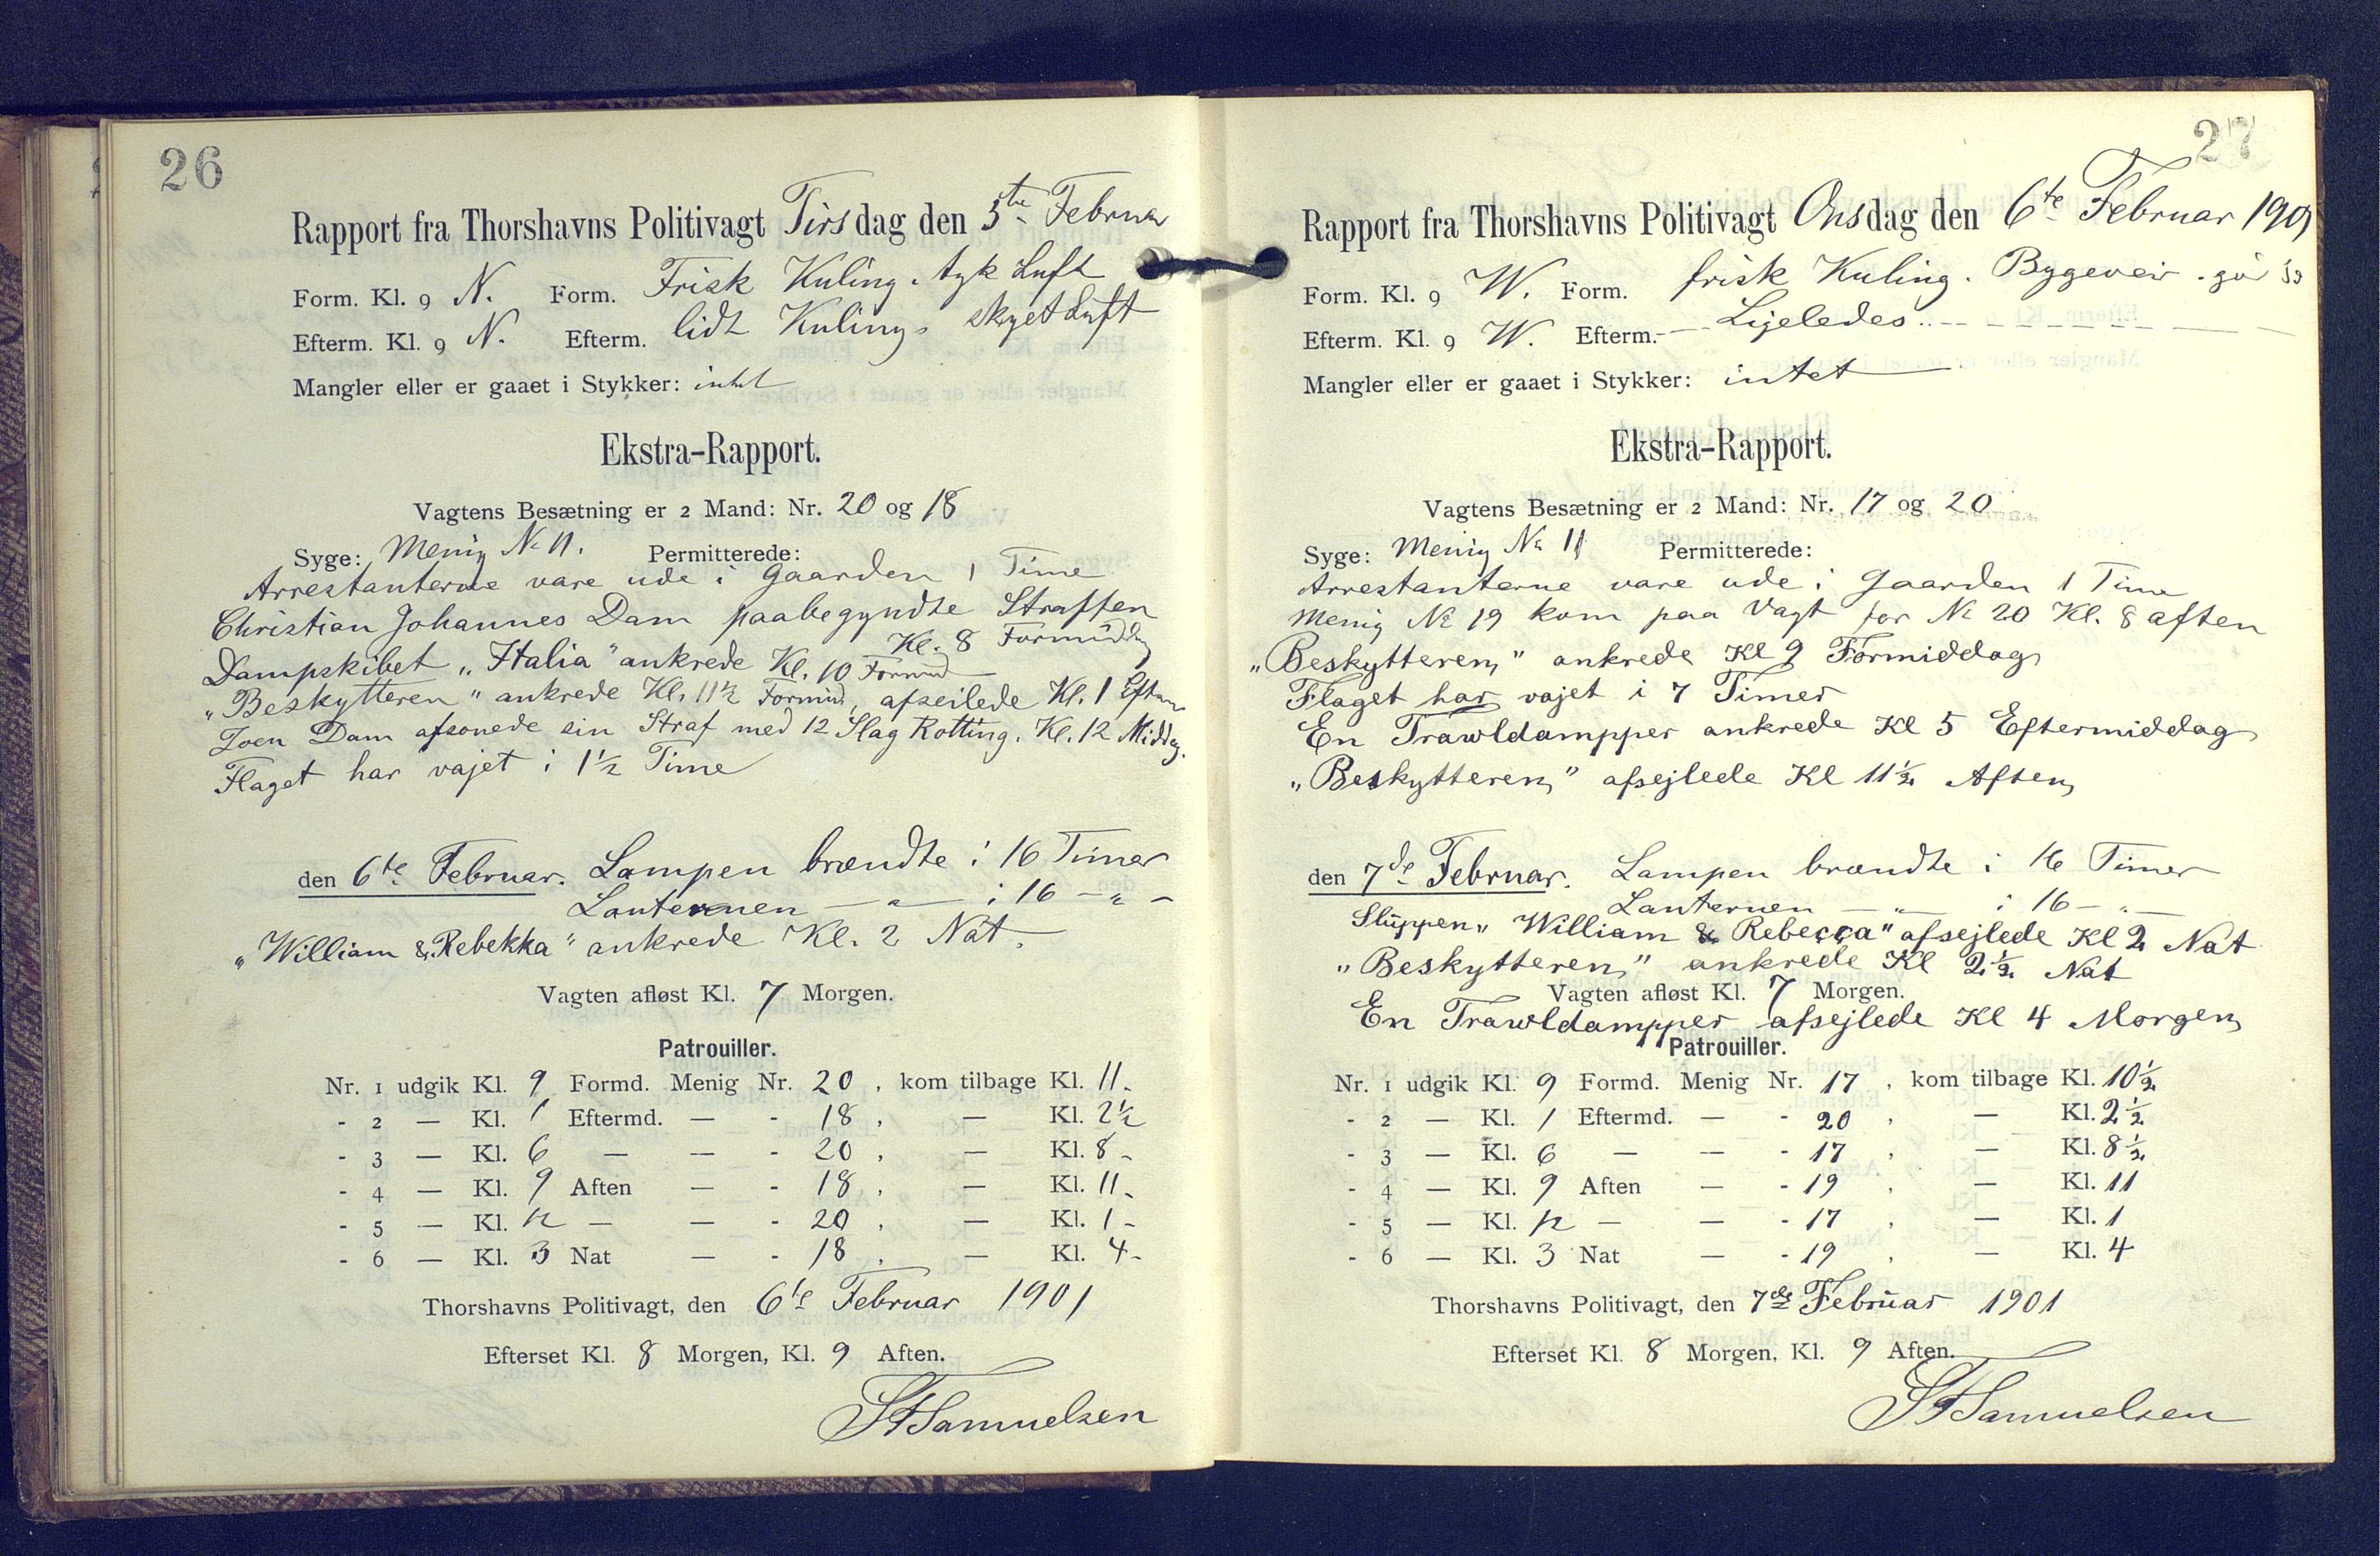 26
Rapport fra Thorshavns Politivagt Tirsdag den 5te Februar
Form. Kl. 9 N. Form. Frisk Kuling. tyk Luft
Efterm. Kl. 9 N. Efterm. lidt Kuling. skyet Luft
Mangler eller er gaaet i Stykker: intet
Ekstra-Rapport.
Vagtens Besætning er 2 Mand: Nr. 20 og 18
Syge: Menig No 11. Permitterede:
Arrestanterne vare ude i Gaarden 1 Time
Christian Johannes Dam paabegyndte Straffen
Kl. 8 Formiddag
Dampskibet „Italia" ankrede Kl. 10 Formd
„Beskytteren" ankrede Kl. 11½ Formid, afseilede Kl. 1 Efterm
Joen Dam afsonede sin Straf med 12 Slag Rotting. Kl. 12 Middag.
Flaget har vajet i 1½ Time
den 6te Februar. Lampen brændte i 16 Timer
Lanternen — " — i 16 — " —
„William & Rebekka" ankrede Kl. 2 Nat.
Vagten afløst Kl. 7 Morgen.
Patrouiller.
Nr. 1 udgik Kl. 9 Formd. Menig Nr. 20, kom tilbage Kl. 11-
- 2 — Kl. 1 Eftermd. — - 18, — Kl. 2½
- 3 — Kl. 6 — — - 20, — Kl. 8-
- 4 — Kl. 9 Aften — - 18, — Kl. 11-
- 5 — Kl. 12 — — - 20, — Kl. 1-
- 6 — Kl. 3 Nat — - 18, — Kl. 4-
Thorshavns Politivagt, den 6te Februar 1901
Efterset Kl. 8 Morgen, Kl. 9 Aften.
SFSamuelsen
27
Rapport fra Thorshavns Politivagt Onsdag den 6te Februar 1901
Form. Kl. 9 W. Form. frisk Kuling. Bygeveir.
Efterm. Kl. 9 W. Efterm. — Ligeledes — — —
Mangler eller er gaaet i Stykker: intet
Ekstra-Rapport.
Vagtens Besætning er 2 Mand: Nr. 17 og 20
Syge: Menig No 11 Permitterede:
Arrestanterne vare ude i Gaarden 1 Time
Menig No 19 kom paa Vagt for No 20 Kl. 8 aften
„Beskytteren" ankrede Kl 9 Formiddag
Flaget har vajet i 7 Timer
En Trawldampper ankrede Kl 5 Eftermiddag
„Beskytteren" afsejlede Kl 11½ Aften
den 7de Februar. Lampen brændte i 16 Timer
Lanternen — " — i 16 — " —
Sluppen „William & Rebecca" afsejlede Kl 2 Nat
„Beskytteren" ankrede Kl 2½ Nat
Vagten afløst Kl. 7 Morgen.
En Trawldampper afsejlede Kl 4 Morgen
Patrouiller.
Nr. 1 udgik Kl. 9 Formd. Menig Nr. 17, kom tilbage Kl. 10½
- 2 — Kl. 1 Eftermd. — - 20, — Kl. 2½
- 3 — Kl. 6 — — - 17, — Kl. 8½
- 4 — Kl. 9 Aften — - 19, — Kl. 11
- 5 — Kl. 12 — — - 17, — Kl. 1
- 6 — Kl. 3 Nat — - 19, — Kl. 4
Thorshavns Politivagt, den 7de Februar 1901
Efterset Kl. 8 Morgen, Kl. 9 Aften.
SFSamuelsen